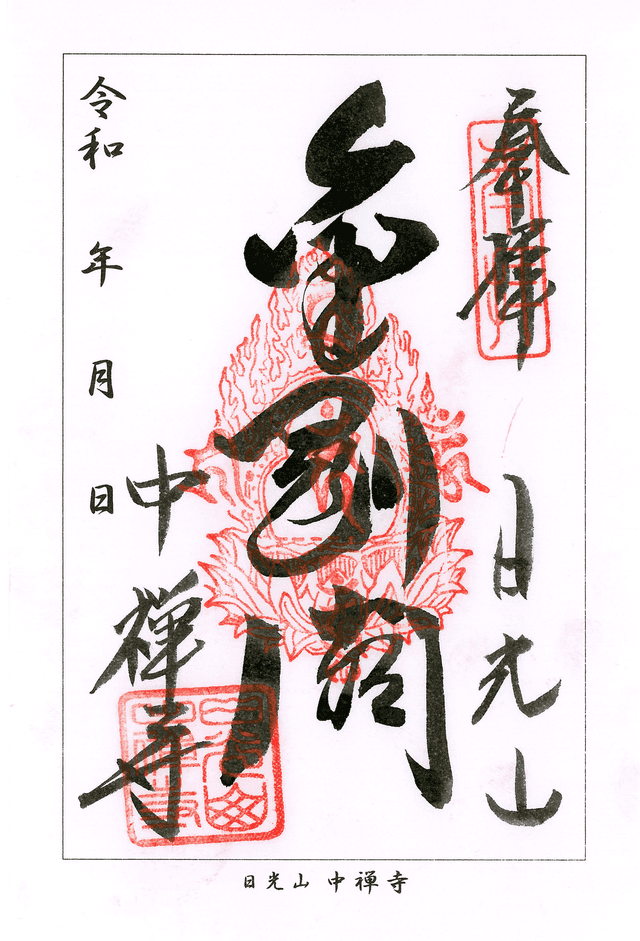 奉拝
日光山
金剛閣
中禅寺
令和 年 月 日
日光山 中禅寺